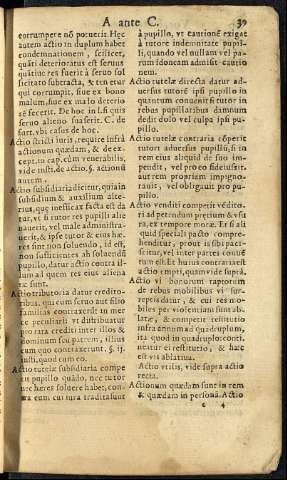 A ante C. 39
corrumpere nō potuerit. Hęc
autem actio in duplum habet
condemnationem, scilicet,
quati deterioratus est seruus
quătiue res fuerit à seruo sol
licitato subtracta, & tenetur
qui corrumpit, siue ex bono
malum, siue ex malo deterio
rē fecerit. De hoc in l. si quis
seruo alieno suaserit. C. de
furt. vbi casus de hoc.
Actio stricti iuris, require infrà
actionum quædam, & de ex-
cept. in cap. cùm venerabilis,
vide insti. de actio. §. actionū
autem.
Actio subsidiaria dicitur, quia in
subsidium & auxilium alte-
rius, quę inefficax facta est da
tur, vt si tutor res pupilli alie
nauerit, vel male administra-
uerit, & ipse tutor & eius hæ-
res sint non soluendo, id est,
non sufficientes ad soluendū
pupillo, datur actio contra il-
lum ad quem res eius aliena
tæ sunt.
Actio tributoria datur credito-
ribus, qui cum seruo aut filio
familias contraxerūt in mer
ce peculiari vt distribuatur
pro rata crediti inter illos &
dominum seu patrem, illius
cum quo contraxerunt. §. ij.
insti. quod cum eo.
Actio tutelæ subsidiaria compe
tit pupillo quādo, nec tutor
nec hæres soluere potest, con-
tra eum cui cura tradita sunt
à pupillo, vt cautionē exigat
à tutore indemnitate pupil-
li, quando vel nullam vel pa-
rum idoneam admisit cautio
nem.
Actio tutelæ directa datur ad-
uersus tutorē ipsi pupillo in
quantum conuenit tutor in
rebus pupillaribus damnum
dedit dolo vel culpa ipsi pu-
pillo.
Actio tutelæ contraria cōpetit
tutori aduersus pupillū, si in
rem eius aliquid de suo im-
pendit, vel pro eo fideiussit,
aut rem propriam impigno-
rauit, vel obligauit pro pu-
pillo.
Actio venditi competit vēdito-
ri ad petendum precium & vsu
ra, ex tempore moræ. Et si ali
quid speciali pacto compre-
henditur, prout is sibi paci-
scitur, vel inter partes conuē
tum est & hæc huic contraria est
actio empti, quam vide suprà.
Actio vi bonorum raptorum
de rebus mobilibus vi sur-
reptis datur, & cui res mo-
biles per violentiam sunt ab-
latæ, & competere institutio
infra annum ad quadruplum,
ita quod in quadruplo: conti
neatur ei restitutio, & hæc
est vis ablatiua.
Actio vtilis, vide supra actio
recta.
Actionum quædam sunt in rem
& quædam in personā. Actio
e 4